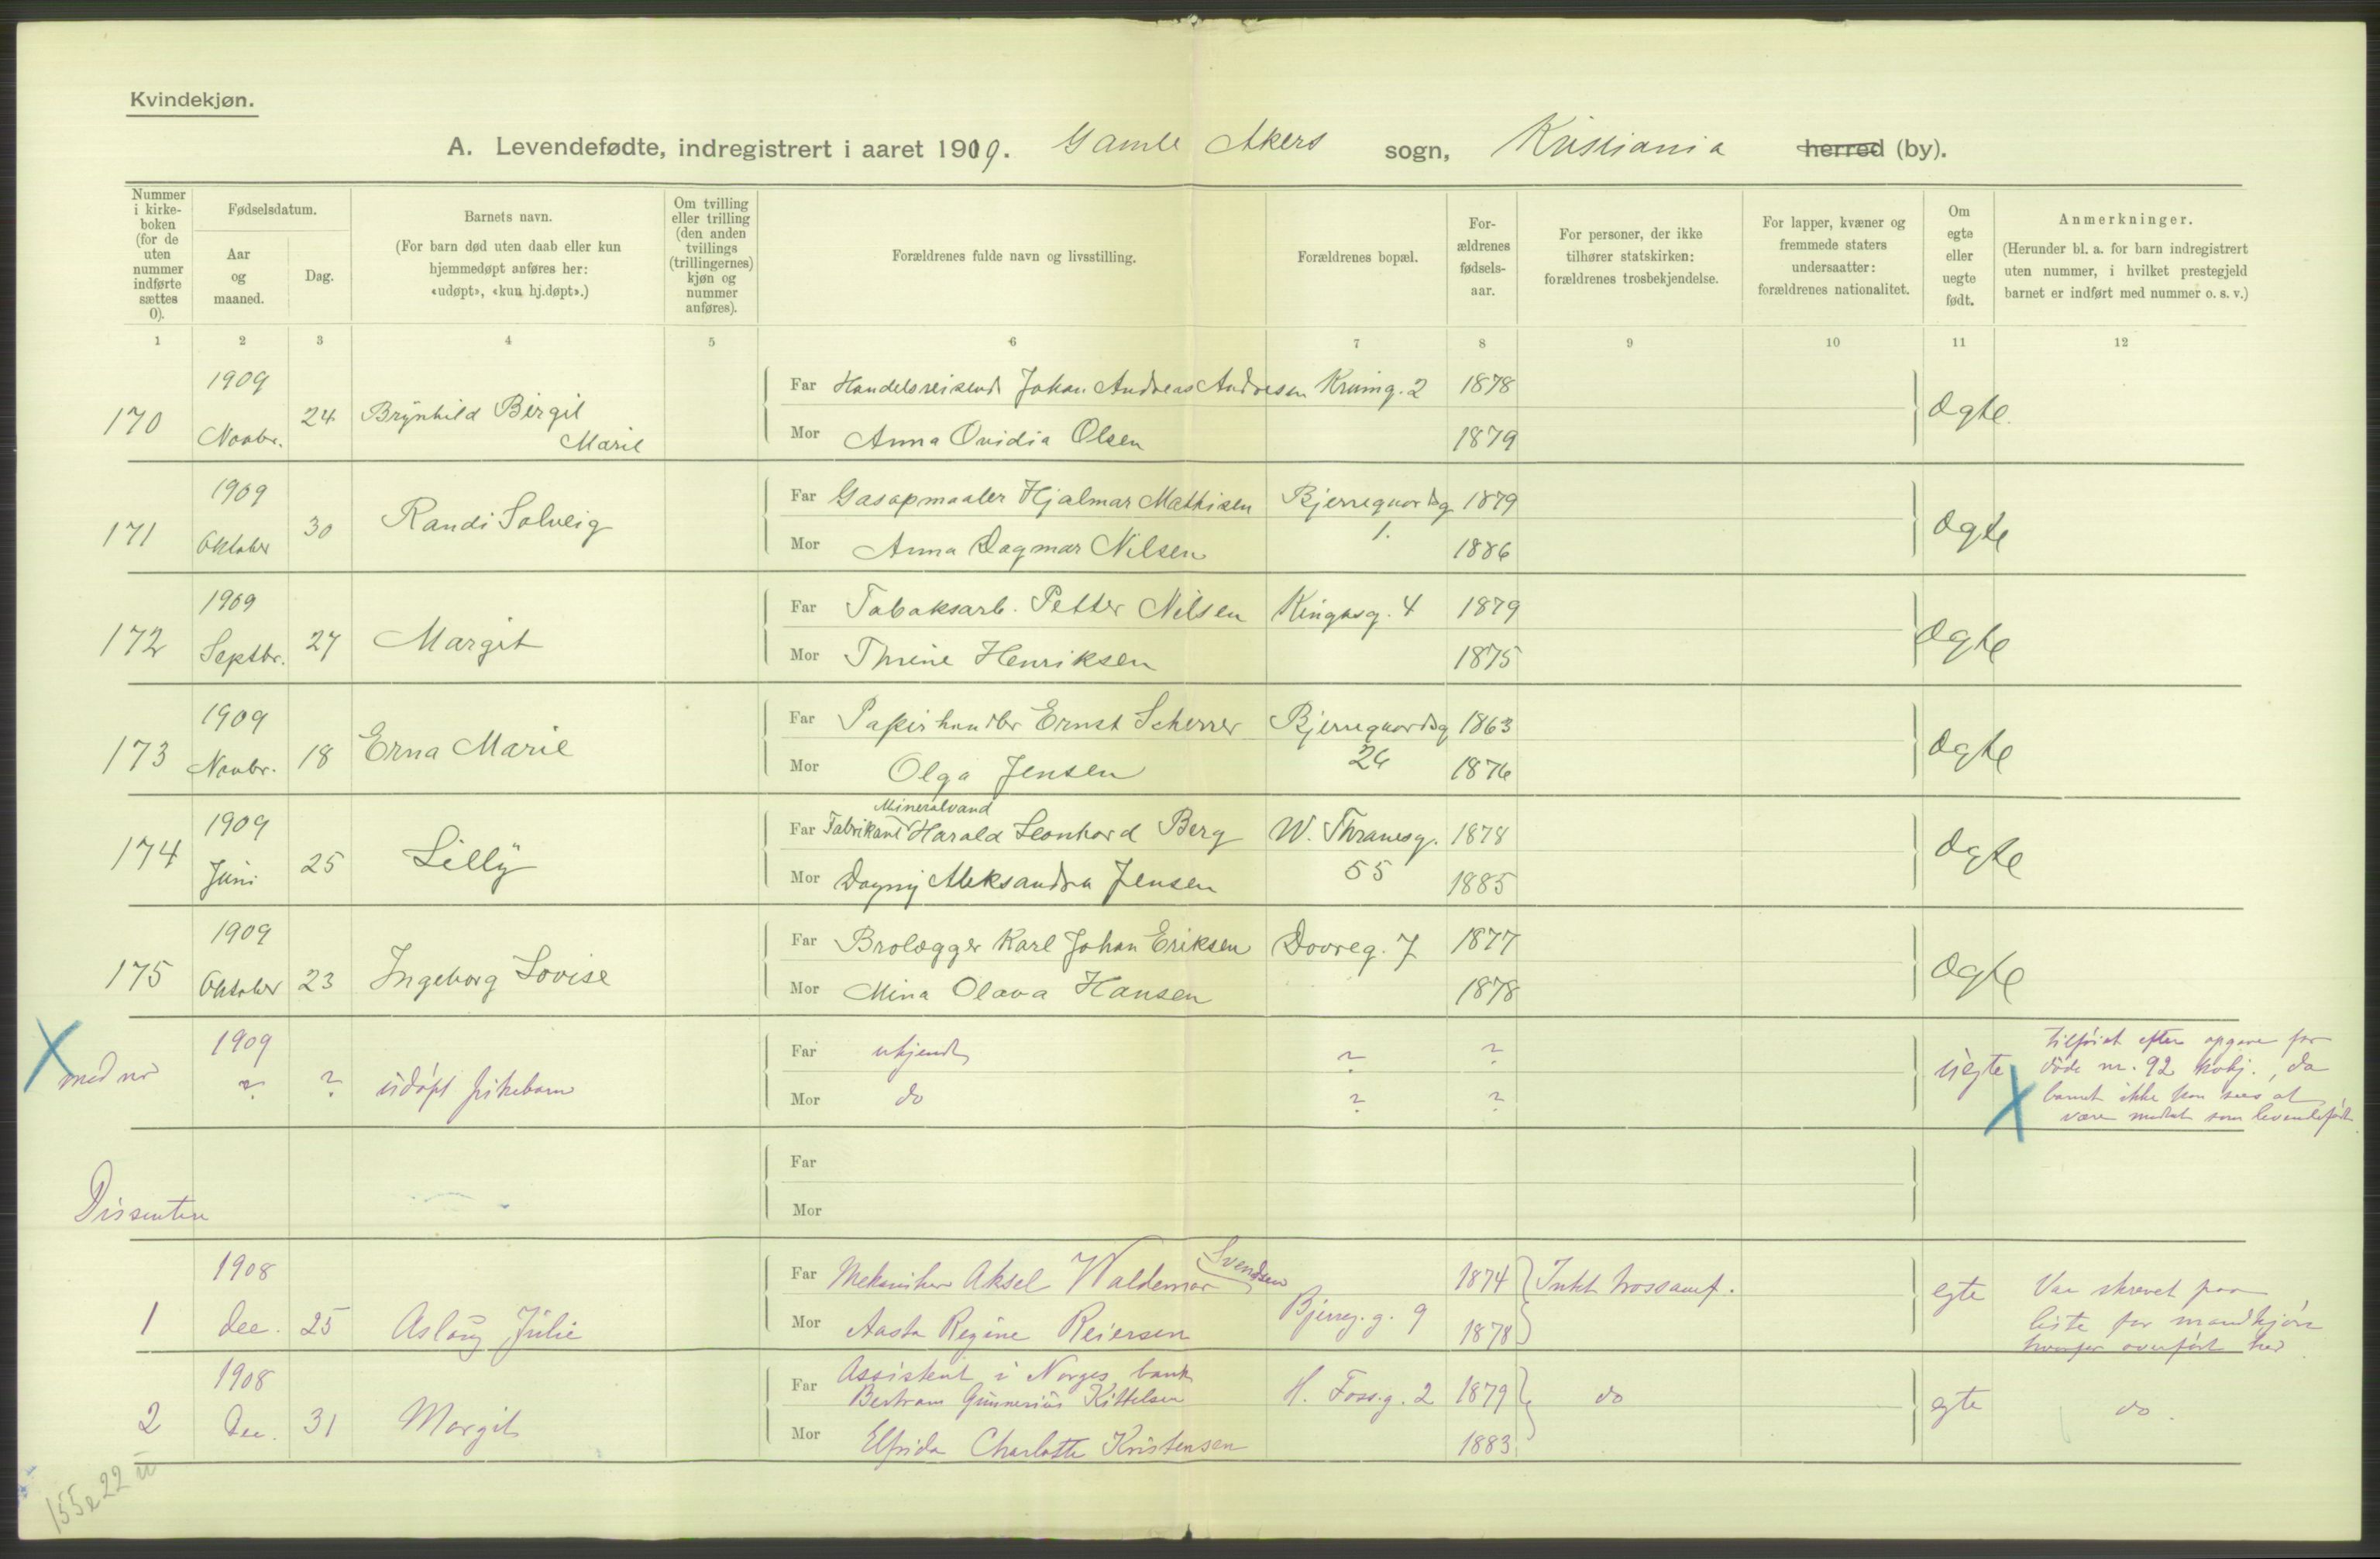 Kvindekjøn.
A. Levendefødte, indregistrert i aaret 1909. Gamle Akers sogn, Kristiania herred (by).
Nummer i kirke-boken (for de uten nummer indførte sættes 0).
Fødselsdatum.
Aar og maaned.
Dag.
Barnets navn.
(For barn død uten daab eller kun hjemmedøpt anføres her: «udøpt», «kun hj.døpt».)
Om tvilling eller trilling (den anden tvillings (trillingernes) kjøn og nummer anføres).
Forældrenes fulde navn og livsstilling.
Forældrenes bopæl.
For-ældrenes fødsels-aar.
For personer, der ikke tilhører statskirken: forældrenes trosbekjendelse.
For lapper, kvæner og fremmede staters undersaatter: forældrenes nationalitet.
Om egte eller uegte født.
Anmerkninger.
(Herunder bl. a. for barn indregistrert uten nummer, i hvilket prestegjeld barnet er indført med nummer o. s. v.)
1 2 3 4 5 6 7 8 9 10 11 12
170 1909 Novbr. 24 Brynhild Birgit Marie
Far Handelsreisende Johan Andreas Andresen Krumg. 2 1878
Mor Anna Ovidia Olsen 1879
Ægte.
171 1909 Oktober 30 Randi Solveig
Far Gasopmaaler Hjalmar Mathisen Bjerregaardsg 1. 1879
Mor Anna Dagmar Nilsen 1886
Ægte
172 1909 Septbr. 27 Margit
Far Tobaksarb. Petter Nilsen Kingosg. 4 1879
Mor Thrine Henriksen 1875
Ægte
173 1909 Novbr. 18 Erna Marie
Far Papirhandler Ernst Scherrer Bjerregaardsg 26 1863
Mor Olga Jensen 1876
Ægte
174 1909 Juni 25 Lilly
Far Mineralvand Fabrikant Harald Leonhard Berg W. Thranesg. 55 1878
Mor Dagny Aleksandra Jensen 1885
Ægte
175 1909 Oktober 23 Ingeborg Lovise
Far Brolægger Karl Johan Eriksen Dovreg. 7 1877
Mor Mina Olava Hansen 1878
Ægte
med nr 1909 ? ? udøpt pikebarn
Far ukjendt ? ?
Mor do ? ?
uegte
tilføiet efter opgave for
døde nr. 92 kvkj., da
barnet ikke kan sees at
være medtat som levendefødt
Far
Mor
Dissentere
1 1908 Dec. 25 Aslaug Julie
Far Mekaniker Aksel Waldemar Svendsen Bjerreg.g. 9 1874
Mor Aasta Regine Reiersen 1878
Inkt trossamf.
egte
Var skrevet paa
liste for mandkjøn
hvorfor overført her
2 1908 Dec. 31 Margit
Far Assistent i Norges bank
Bertram Gunnerius Kittelsen H. Foss.g. 2 1879
Mor Elfrida Charlotte Kristensen 1883
do
egte
do.